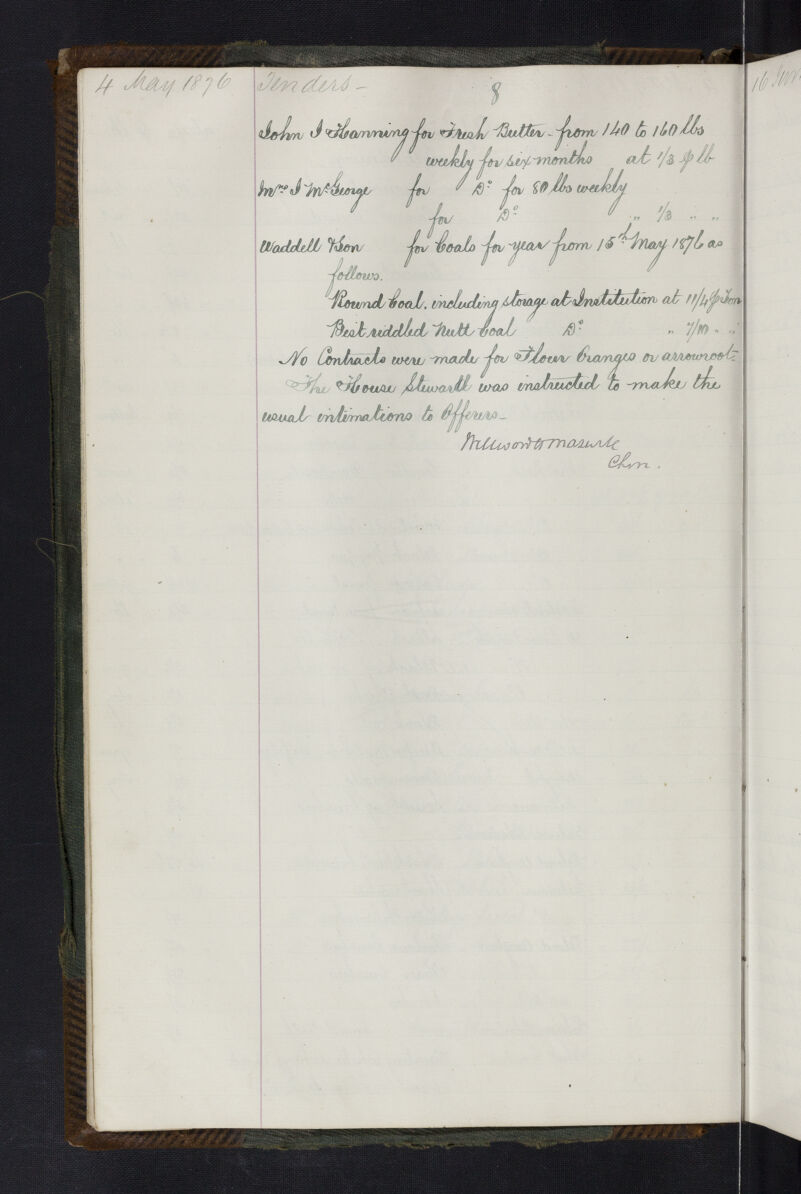 4 May 1876 Tenders –
8
John J Hanning for Fresh Butter - from 140 to 160 lbs
weekly for six months at 1/3 ⅌ lb
Mrs J McGeorge for Do for 80 lbs weekly
for Do " 1/3 " "
Waddell & Son for Coals for year from 15th May 1876 as
follows.
Round Coal, including storage at Institution at 11/4 ⅌ Ton
Best riddled Nutt Coal Do " 7/10 " "
No Contracts were made for Flour Oranges or arrowroot.
The House Stewartt was instructed to make the
usual intimations to Offerers –
Chn.
16 Jun